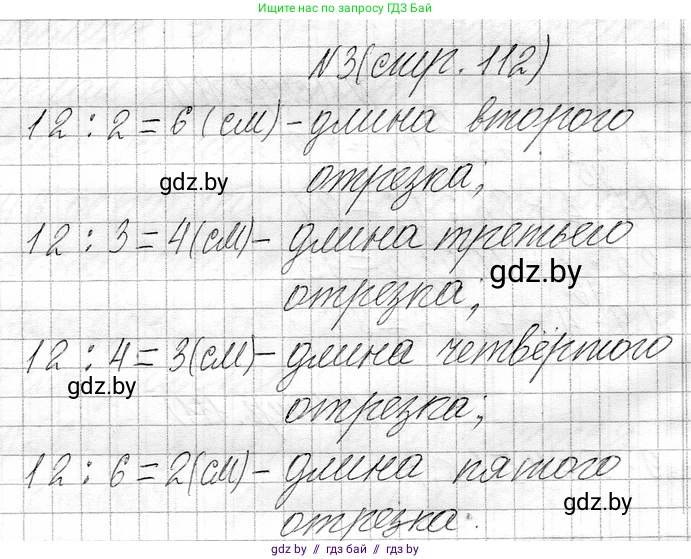 Ищите нас только по запросу ГДЗ Бай
N3(стр. 112)
12 : 2 = 6 (см) – длина второго
отрезка;
gdz.by
12 : 3 = 4(см) – длина третьего
gdz.by
отрезка;
12 : 4 = 3(см) – длина четвёртого
gdz.by
отрезка;
12 : 6 = 2(см) – длина пятого
gdz.by
отрезка.
gdz.by // гдз бай // gdz.by